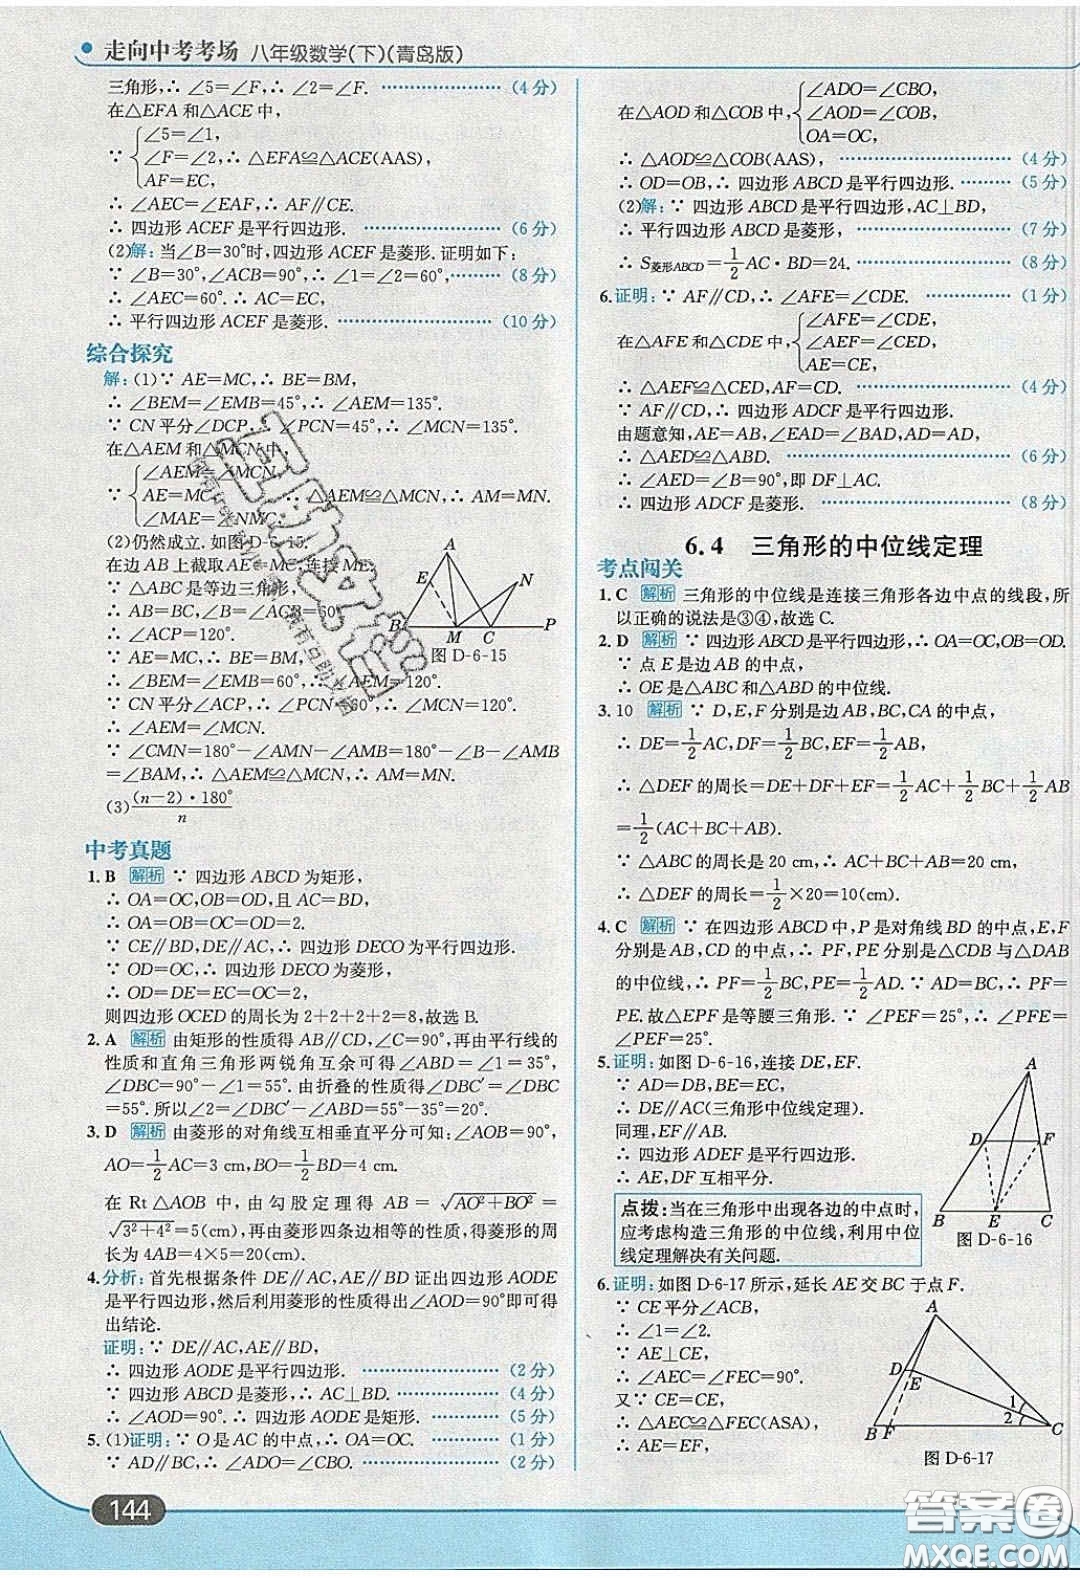 走向中考考场 八年级数学(下)(青岛版)
三角形,∴∠5=∠F,∴∠2=∠F. ……(4分)
在△EFA和△ACE中,
∠5=∠1,
∵ ∠F=∠2,∴△EFA≌△ACE(AAS),
AF=EC,
∴∠AEC=∠EAF,∴AF∥CE.
∴四边形ACEF是平行四边形. ……(6分)
(2)解:当∠B=30°时,四边形ACEF是菱形.证明如下:
∵∠B=30°,∠ACB=90°,∴∠1=∠2=60°. ……(8分)
∴∠AEC=60°.∴AC=EC,
∴平行四边形ACEF是菱形. ……(10分)
综合探究
解:(1)∵AE=MC,∴BE=BM,
∴∠BEM=∠EMB=45°,∴∠AEM=135°.
∵CN平分∠DCP,∴∠PCN=45°,∴∠MCN=135°.
在△AEM和△MCN中,
∠AEM=∠MCN,
∵ AE=MC, ∴△AEM≌△MCN,∴AM=MN.
∠MAE=∠NMC,
(2)仍然成立.如图D-6-15.
在边AB上截取AE=MC,连接ME.
∵△ABC是等边三角形,
∴AB=BC,∠B=∠ACB=60°,
∴∠ACP=120°.
∵AE=MC,∴BE=BM,
∴∠BEM=∠EMB=60°,∴∠AEM=120°.
∵CN平分∠ACP,∴∠PCN=60°,∴∠MCN=120°.
∴∠AEM=∠MCN.
∵∠CMN=180°-∠AMN-∠AMB=180°-∠B-∠AMB
=∠BAM,∴△AEM≌△MCN,∴AM=MN.
(3)(n-2)·180°/n
A
E
N
B
M
C
P
图D-6-15
中考真题
1.B 解析 ∵四边形ABCD为矩形,
∴OA=OC,OB=OD,且AC=BD,
∴OA=OB=OC=OD=2.
∵CE∥BD,DE∥AC,∴四边形DECO为平行四边形.
∵OD=OC,∴四边形DECO为菱形,
∴OD=DE=EC=OC=2,
则四边形OCED的周长为2+2+2+2=8,故选B.
2.A 解析 由矩形的性质得AB∥CD,∠C=90°,再由平行线的
性质和直角三角形两锐角互余可得∠ABD=∠1=35°,
∠DBC=90°-∠1=55°.由折叠的性质得∠DBC′=∠DBC
=55°.所以∠2=∠DBC′-∠ABD=55°-35°=20°.
3.D 解析 由菱形的对角线互相垂直平分可知:∠AOB=90°,
AO=1/2AC=3 cm,BO=1/2BD=4 cm.
在Rt△AOB中,由勾股定理得AB=√(AO²+BO²)
=√(3²+4²)=5(cm),再由菱形四条边相等的性质,得菱形的周
长为4AB=4×5=20(cm).
4.分析:首先根据条件DE∥AC,AE∥BD证出四边形AODE
是平行四边形,然后利用菱形的性质得出∠AOD=90°即可得
出结论.
证明:∵DE∥AC,AE∥BD,
∴四边形AODE是平行四边形. ……(2分)
∵四边形ABCD是菱形,∴AC⊥BD. ……(4分)
∴∠AOD=90°.∴四边形AODE是矩形. ……(5分)
5.(1)证明:∵O是AC的中点,∴OA=OC. ……(1分)
∵AD∥BC,∴∠ADO=∠CBO. ……(2分)
144
∠ADO=∠CBO,
在△AOD和△COB中, ∠AOD=∠COB,
OA=OC,
∴△AOD≌△COB(AAS), ……(4分)
∴OD=OB,∴四边形ABCD是平行四边形. ……(5分)
(2)解:∵四边形ABCD是平行四边形,AC⊥BD,
∴平行四边形ABCD是菱形, ……(7分)
∴S菱形ABCD=1/2AC·BD=24. ……(8分)
6.证明:∵AF∥CD,∴∠AFE=∠CDE. ……(1分)
∠AFE=∠CDE,
在△AFE和△CDE中, ∠AEF=∠CED,
AE=CE,
∴△AEF≌△CED,AF=CD. ……(4分)
∵AF∥CD,∴四边形ADCF是平行四边形.
由题意知,AE=AB,∠EAD=∠BAD,AD=AD,
∴△AED≌△ABD. ……(6分)
∴∠AED=∠B=90°,即DF⊥AC.
∴四边形ADCF是菱形. ……(8分)
6.4 三角形的中位线定理
考点闯关
1.C 解析 三角形的中位线是连接三角形各边中点的线段,所
以正确的说法是③④,故选C.
2.D 解析 ∵四边形ABCD是平行四边形,∴OA=OC,OB=OD.
∵点E是边AB的中点,
∴OE是△ABC和△ABD的中位线.
3.10 解析 ∵D,E,F分别是边AB,BC,CA的中点,
∴DE=1/2AC,DF=1/2BC,EF=1/2AB,
∴△DEF的周长=DE+DF+EF=1/2AC+1/2BC+1/2AB
=1/2(AC+BC+AB).
∵△ABC的周长是20 cm,∴AC+BC+AB=20 cm,
∴△DEF的周长=1/2×20=10(cm).
4.C 解析 ∵在四边形ABCD中,P是对角线BD的中点,E,F
分别是AB,CD的中点,∴PF,PE分别是△CDB与△DAB
的中位线,∴PF=1/2BC,PE=1/2AD.∵AD=BC,∴PF=
PE.故△EPF是等腰三角形.∵∠PEF=25°,∴∠PFE=
∠PEF=25°.
5.证明:如图D-6-16,连接DE,EF.
∵AD=DB,BE=EC,
∴DE∥AC(三角形中位线定理).
同理,EF∥AB.
∴四边形ADEF是平行四边形.
∴AE,DF互相平分.
点拨:当在三角形中出现各边的中点时,
应考虑构造三角形的中位线,利用中位
线定理解决有关问题.
A
D
F
B
E
C
图D-6-16
6.证明:如图D-6-17所示,延长AE交BC于点F.
∵CE平分∠ACB,
∴∠1=∠2.
∵AE⊥CE,
∴∠AEC=∠FEC=90°.
又∵CE=CE,
∴△AEC≌△FEC(ASA).
∴AE=EF,
A
D
E
1
2
B
F
C
图D-6-17
答案圈
MXQE.COM